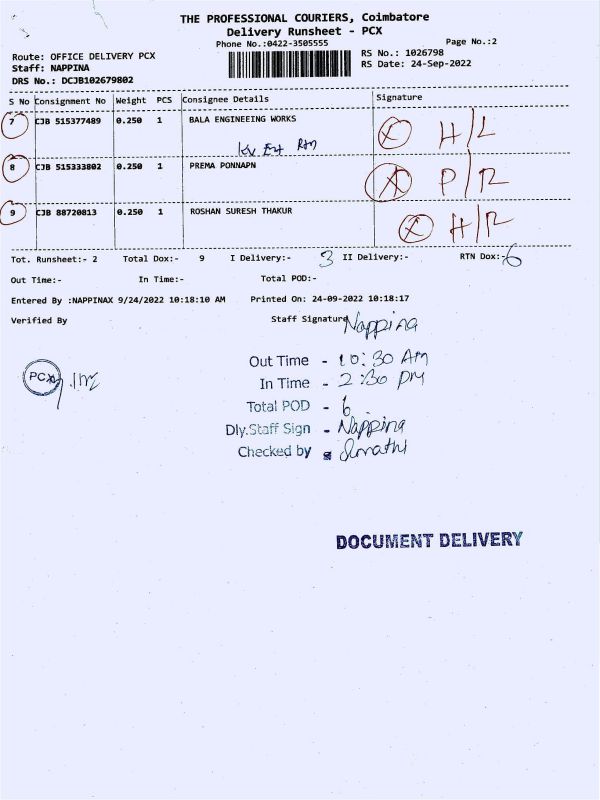 THE PROFESSIONAL COURIERS, Coimbatore
Delivery Runsheet - PCX
Phone No.:0422-3505555 Page No.:2
Route: OFFICE DELIVERY PCX RS No.: 1026798
Staff: NAPPINA RS Date: 24-Sep-2022
DRS No.: DCJB102679802
S No Consignment No Weight PCS Consignee Details Signature
7 CJB 515377489 0.250 1 BALA ENGINEEING WORKS H/L
8 CJB 515333802 0.250 1 PREMA PONNAPN P/R
9 CJB 88720813 0.250 1 ROSHAN SURESH THAKUR H/R
Tot. Runsheet:- 2 Total Dox:- 9 I Delivery:- 3 II Delivery:- RTN Dox:- 6
Out Time:- In Time:- Total POD:-
Entered By :NAPPINAX 9/24/2022 10:18:10 AM Printed On: 24-09-2022 10:18:17
Verified By Staff Signature Nappina
PCX
Out Time - 10:30 Am
In Time - 2:30 pm
Total POD - 6
Dly.Staff Sign - Nappina
Checked by -
DOCUMENT DELIVERY